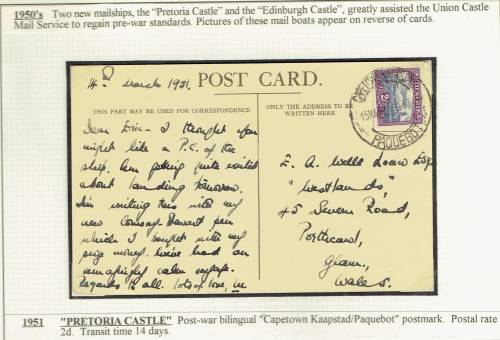 1950's Two new mailships, the "Pretoria Castle" and the "Edinburgh Castle", greatly assisted the Union Castle
Mail Service to regain pre-war standards. Pictures of these mail boats appear on reverse of cards.
14th March 1951.
POST CARD.
THIS PART MAY BE USED FOR CORRESPONDENCE
ONLY THE ADDRESS TO BE
WRITTEN HERE
Dear Eric - I thought you
might like a P.C. of the
ship. Am getting quite excited
about landing tomorrow.
I'm writing this with my
new Conway-Stewart pen
which I bought with my
prize money. We've had an
amazingly calm voyage.
Regards to all. Lots of love,
PAQUEBOT
E. A. Wells Esq.
"Westlands,"
45 Severn Road,
Porthcawl,
Glam.,
Wales.
1951 "PRETORIA CASTLE" Post-war bilingual "Capetown Kaapstad/Paquebot" postmark. Postal rate
2d. Transit time 14 days.